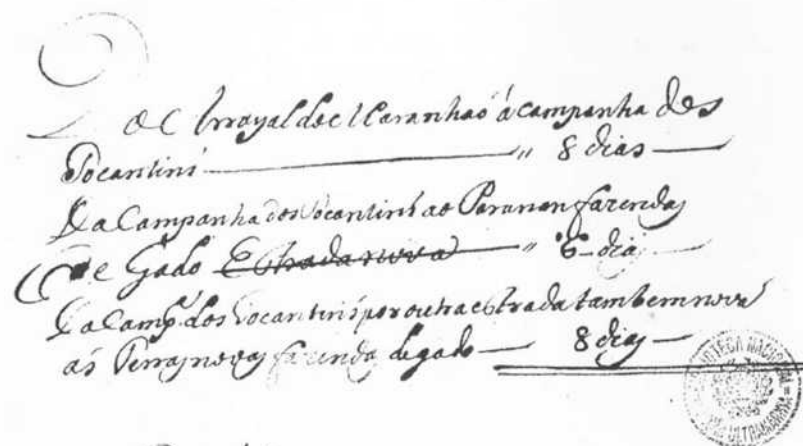 Do Arrayal do Maranhaõ á campanha dos
Tocantins ——— " 8 dias —
Da Campanha dos Tocantins ao Paranan fazendas
de Gado Estrada nova " 6 dias —
Da Camp.ª dos Tocantins por outra estrada tambem nova
ás Terras novas fazendas de gado — 8 dias —
BIBLIOTECA NACIONAL
ULTRAMARINA